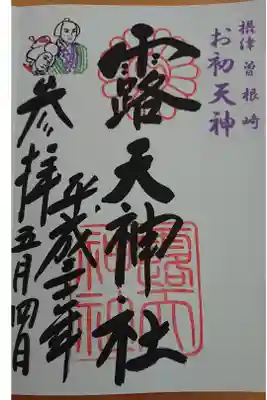 摂津 曽根崎
お初天神
露天神社
平成二十二年
五月四日
参拝